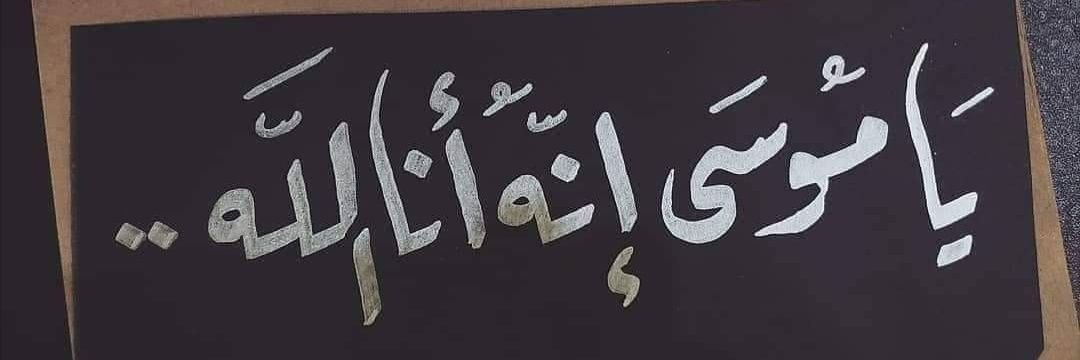 يَا مُوسَى إِنّهُ أَنَا اللَّه ..